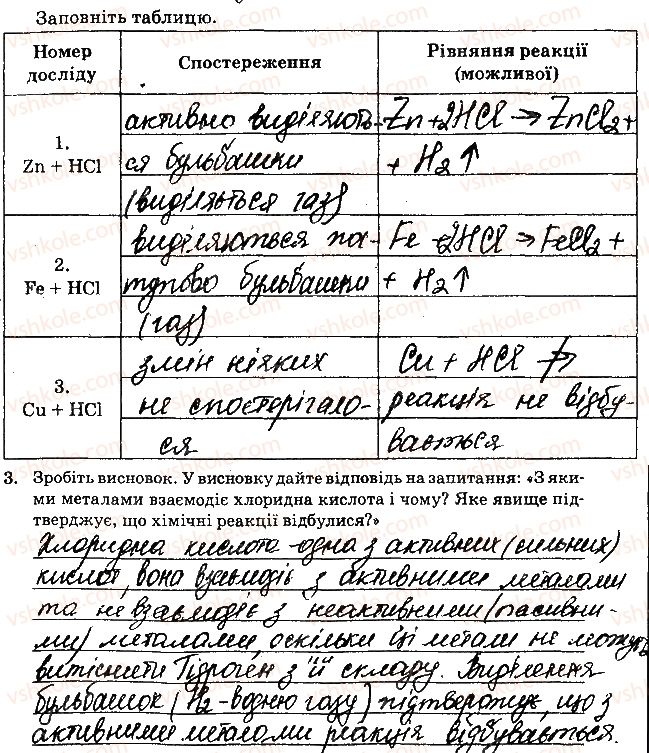 Заповніть таблицю.
Номер досліду
Спостереження
Рівняння реакції (можливої)
1.
Zn + HCl
активно виділяють-
ся бульбашки
(виділяється газ)
Zn + 2HCl → ZnCl₂ +
+ H₂↑
2.
Fe + HCl
виділяються пос-
тупово бульбашки
(газ)
Fe + 2HCl → FeCl₂ +
+ H₂↑
3.
Cu + HCl
змін ніяких
не спостерігало-
ся
Cu + HCl ↛
реакція не відбу-
вається
3. Зробіть висновок. У висновку дайте відповідь на запитання: «З яки-
ми металами взаємодіє хлоридна кислота і чому? Яке явище під-
тверджує, що хімічні реакції відбулися?»
Хлоридна кислота - одна з активних (сильних)
кислот, вона взаємодіє з активними металами
та не взаємодіє з неактивними (пасивни-
ми) металами, оскільки ці метали не можуть
витіснити Гідроген з її складу. Виділення
бульбашок (H₂ - водню газу) підтверджує, що з
активними металами реакція відбувається.
vshkole.com